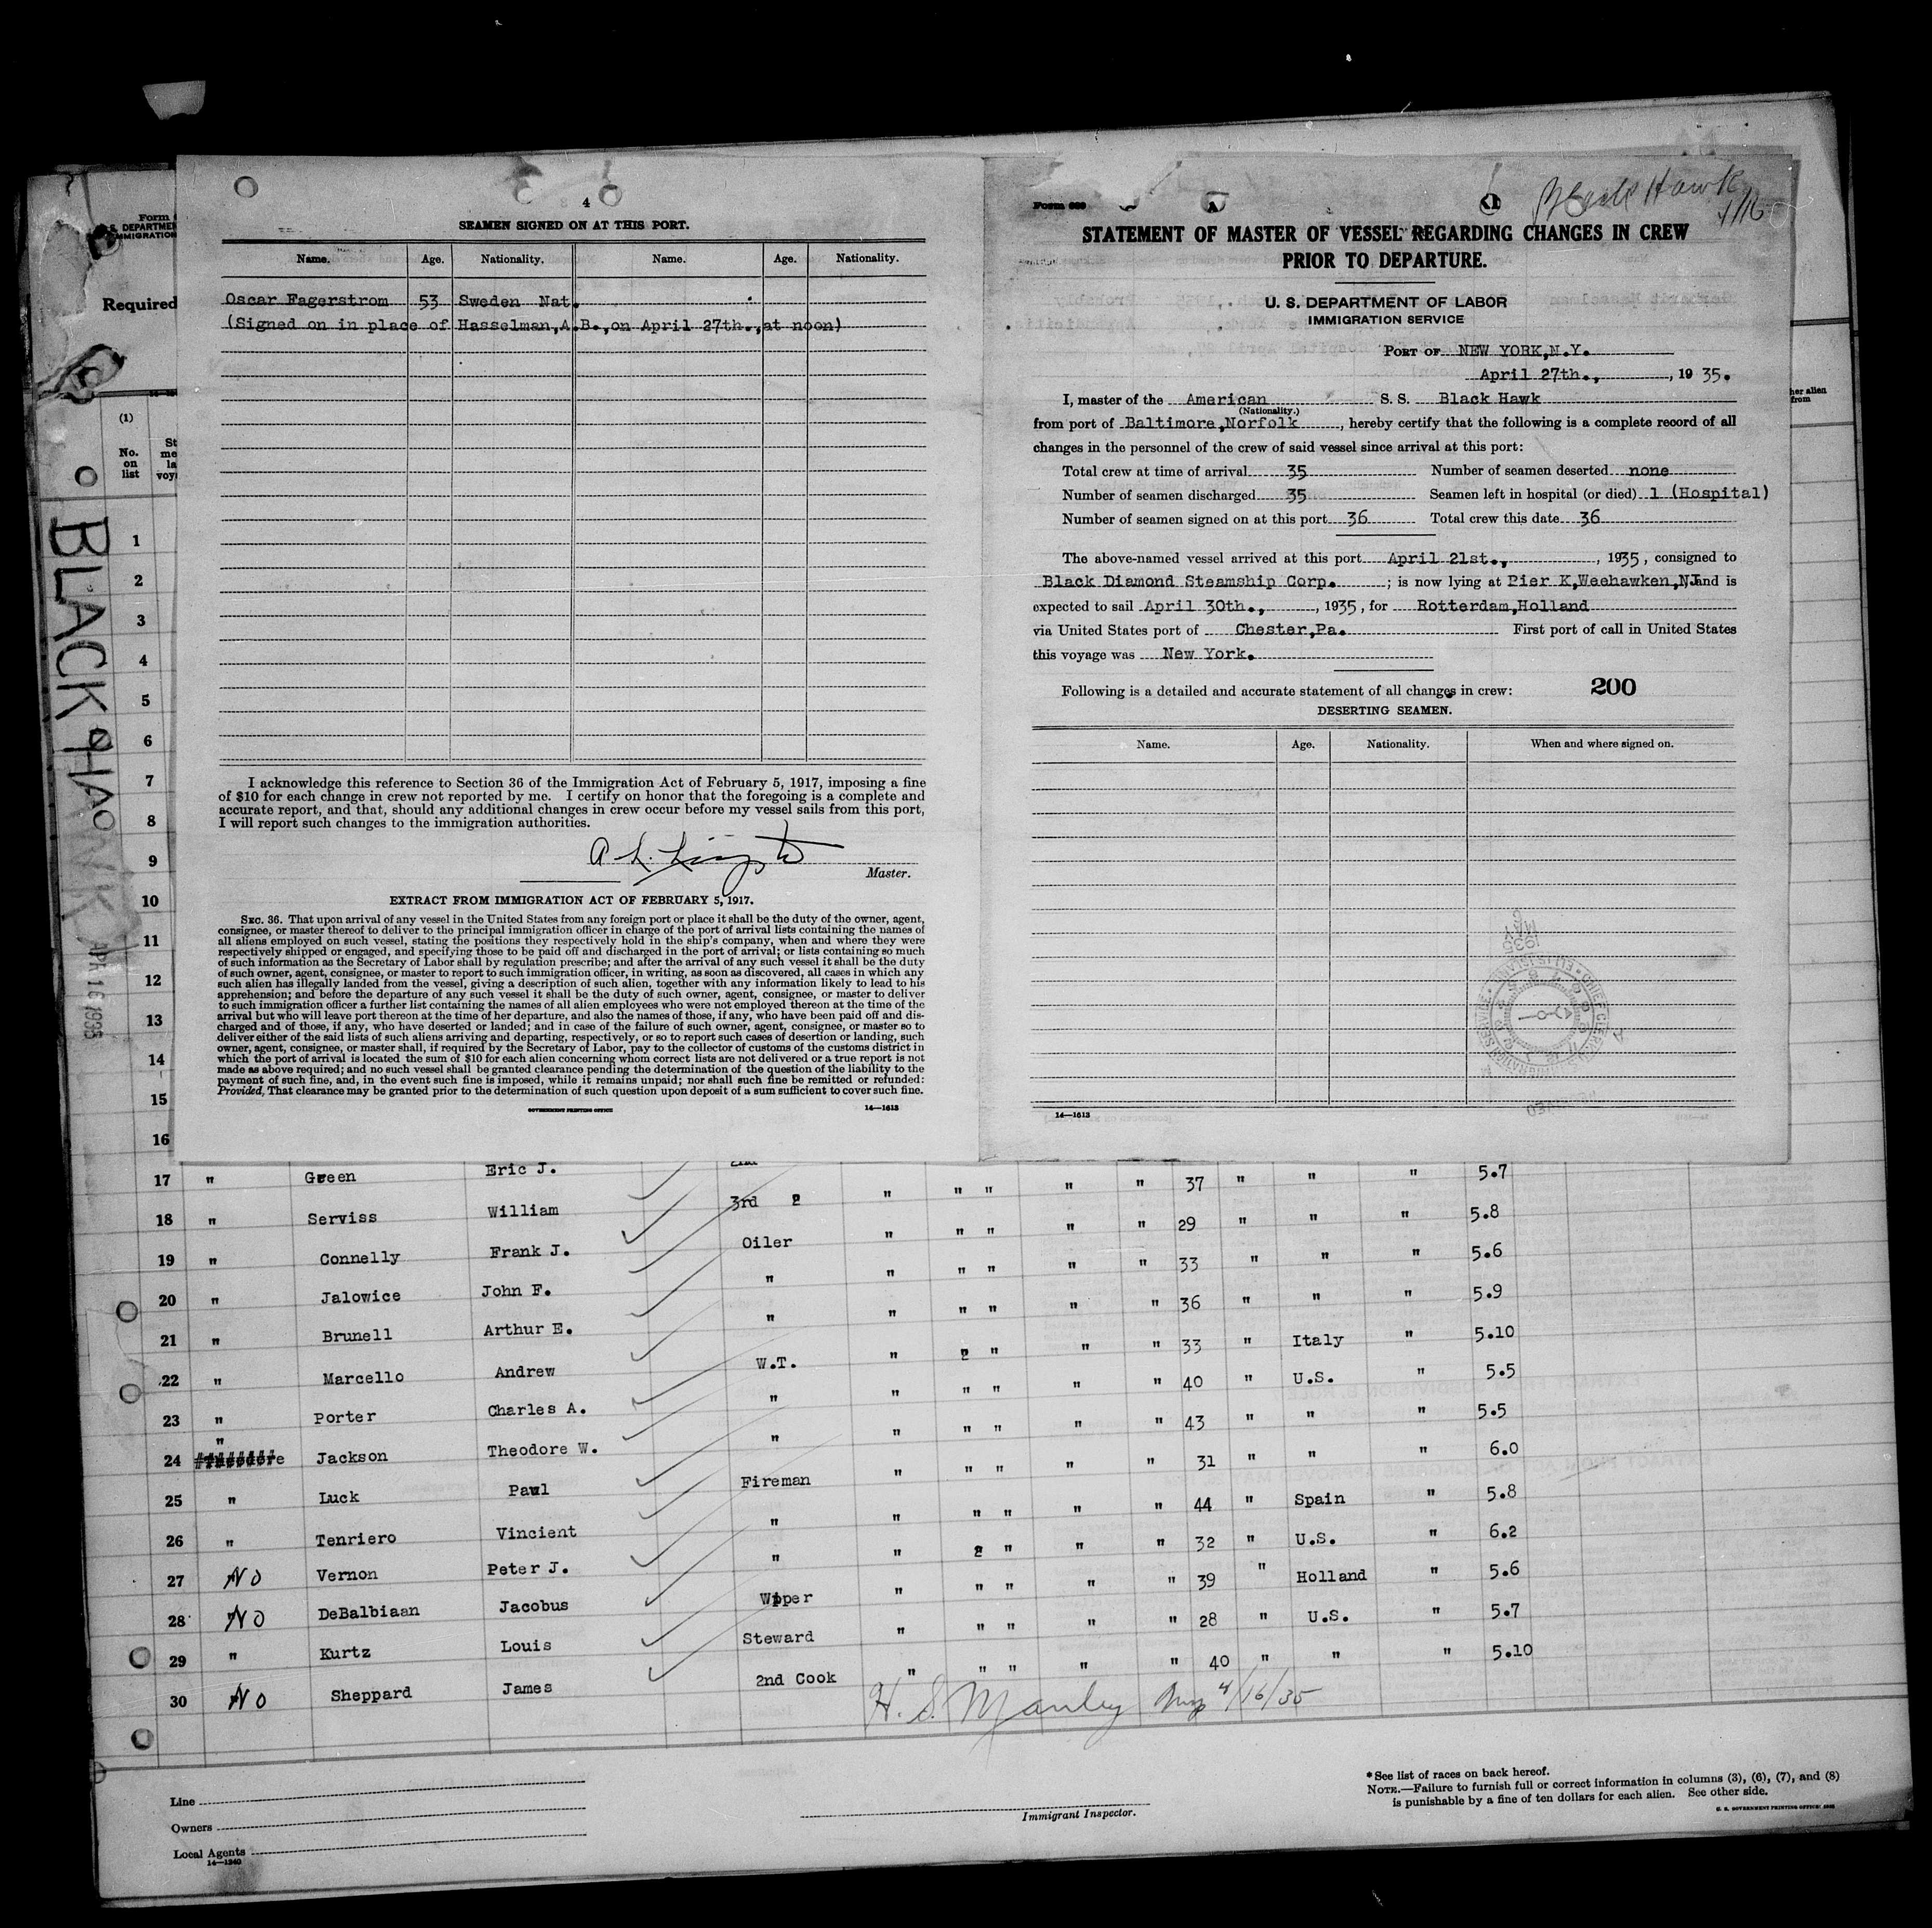 Form 
U. S. DEPARTMEN
IMMIGRATION
Required
(1)
No.
on
list
St
me
la
voy
BLACK HAWK
APR 16 1935
1
2
3
4
5
6
7
8
9
10
11
12
13
14
15
16
4
SEAMEN SIGNED ON AT THIS PORT.
Name. Age. Nationality. Name. Age. Nationality.
Oscar Fagerstrom 53 Sweden Nat.
(Signed on in place of Hasselman,A.B.,on April 27th.,at noon)
I acknowledge this reference to Section 36 of the Immigration Act of February 5, 1917, imposing a fine
of $10 for each change in crew not reported by me. I certify on honor that the foregoing is a complete and
accurate report, and that, should any additional changes in crew occur before my vessel sails from this port,
I will report such changes to the immigration authorities.
A. L.
Master.
EXTRACT FROM IMMIGRATION ACT OF FEBRUARY 5, 1917.
SEC. 36. That upon arrival of any vessel in the United States from any foreign port or place it shall be the duty of the owner, agent,
consignee, or master thereof to deliver to the principal immigration officer in charge of the port of arrival lists containing the names of
all aliens employed on such vessel, stating the positions they respectively hold in the ship's company, when and where they were
respectively shipped or engaged, and specifying those to be paid off and discharged in the port of arrival; or lists containing so much
of such information as the Secretary of Labor shall by regulation prescribe; and after the arrival of any such vessel it shall be the duty
of such owner, agent, consignee, or master to report to such immigration officer, in writing, as soon as discovered, all cases in which any
such alien has illegally landed from the vessel, giving a description of such alien, together with any information likely to lead to his
apprehension; and before the departure of any such vessel it shall be the duty of such owner, agent, consignee, or master to deliver
to such immigration officer a further list containing the names of all alien employees who were not employed thereon at the time of the
arrival but who will leave port thereon at the time of her departure, and also the names of those, if any, who have been paid off and dis-
charged and of those, if any, who have deserted or landed; and in case of the failure of such owner, agent, consignee, or master so to
deliver either of the said lists of such aliens arriving and departing, respectively, or so to report such cases of desertion or landing, such
owner, agent, consignee, or master shall, if required by the Secretary of Labor, pay to the collector of customs of the customs district in
which the port of arrival is located the sum of $10 for each alien concerning whom correct lists are not delivered or a true report is not
made as above required; and no such vessel shall be granted clearance pending the determination of the question of the liability to the
payment of such fine, and, in the event such fine is imposed, while it remains unpaid; nor shall such fine be remitted or refunded:
Provided, That clearance may be granted prior to the determination of such question upon deposit of a sum sufficient to cover such fine.
GOVERNMENT PRINTING OFFICE 14—1613
Form 689
Black Hawk
4/16
STATEMENT OF MASTER OF VESSEL REGARDING CHANGES IN CREW
PRIOR TO DEPARTURE.
U. S. DEPARTMENT OF LABOR
IMMIGRATION SERVICE
PORT OF NEW YORK,N.Y.
April 27th., , 19 35.
I, master of the American S. S. Black Hawk
(Nationality.)
from port of Baltimore,Norfolk , hereby certify that the following is a complete record of all
changes in the personnel of the crew of said vessel since arrival at this port:
Total crew at time of arrival 35 Number of seamen deserted none
Number of seamen discharged 35 Seamen left in hospital (or died) 1 (Hospital)
Number of seamen signed on at this port 36 Total crew this date 36
The above-named vessel arrived at this port April 21st., , 1935, consigned to
Black Diamond Steamship Corp. ; is now lying at Pier K,Weehawken,NJ and is
expected to sail April 30th., , 1935, for Rotterdam,Holland
via United States port of Chester,Pa. First port of call in United States
this voyage was New York.
Following is a detailed and accurate statement of all changes in crew: 200
DESERTING SEAMEN.
Name. Age. Nationality. When and where signed on.
14—1613
her alien
from
17 " Green Eric J. 2nd " " " " " 37 " " " 5.7
18 " Serviss William 3rd " " " " " 29 " " " 5.8
19 " Connelly Frank J. Oiler " " " " " 33 " " " 5.6
20 " Jalowice John F. " " " " " " 36 " " " 5.9
21 " Brunell Arthur E. " " " " " " 33 " Italy " 5.10
22 " Marcello Andrew W.T. " " " " " 40 " U.S. " 5.5
23 " Porter Charles A. " " " " " " 43 " " " 5.5
24 " Jackson Theodore W. " " " " " " 31 " " " 6.0
25 " Luck Paul Fireman " " " " " 44 " Spain " 5.8
26 " Tenriero Vincient " " " " " " 32 " U.S. " 6.2
27 No Vernon Peter J. " " " " " " 39 " Holland " 5.6
28 No DeBalbiaan Jacobus Wiper " " " " " 28 " U.S. " 5.7
29 " Kurtz Louis Steward " " " " " 40 " " " 5.10
30 No Sheppard James 2nd Cook
H. S. Manley Insp 4/16/35
Line
Owners
Local Agents
14—1240
Immigrant Inspector.
* See list of races on back hereof.
NOTE.—Failure to furnish full or correct information in columns (3), (6), (7), and (8)
is punishable by a fine of ten dollars for each alien. See other side.
U. S. GOVERNMENT PRINTING OFFICE: